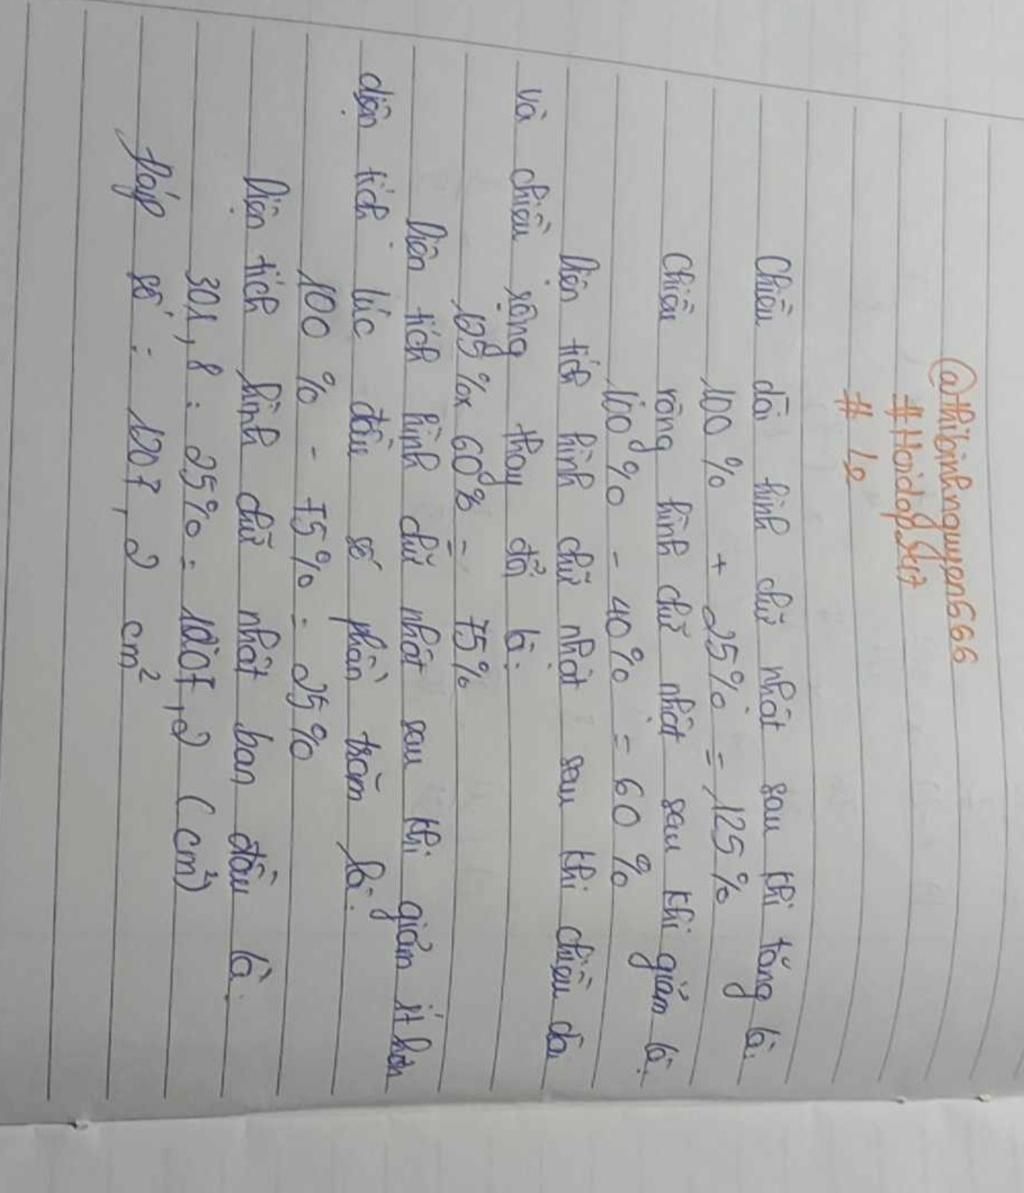 @thibinhnguyen5666
#Hoidap247
# L2
Chiều dài hình chữ nhật sau khi tăng là:
100 % + 25% = 125 %
Chiều rộng hình chữ nhật sau khi giảm là:
100 % - 40% = 60 %
Diện tích hình chữ nhật sau khi chiều dài
và chiều rộng thay đổi là:
125 % x 60% = 75%
Diện tích hình chữ nhật sau khi giảm ít hơn
diện tích lúc đầu số phần trăm là:
100 % - 75% = 25%
Diện tích hình chữ nhật ban đầu là:
301,8 : 25% = 1207,2 (cm²)
Đáp số : 1207,2 cm²